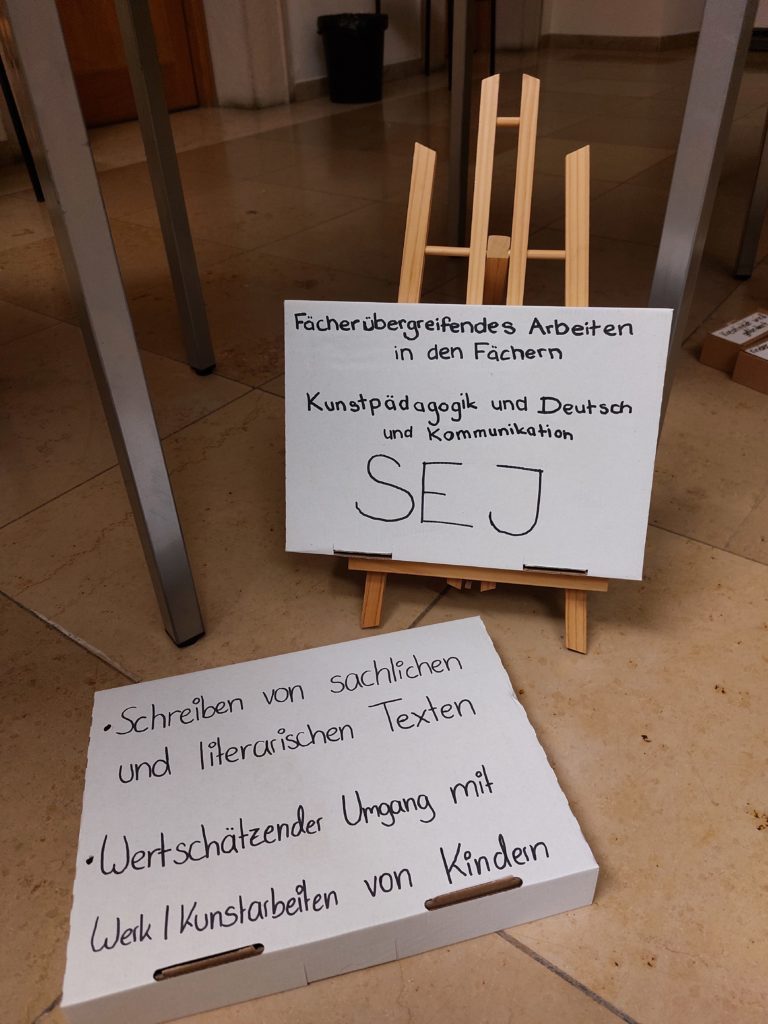 Fächerübergreifendes Arbeiten
in den Fächern
Kunstpädagogik und Deutsch
und Kommunikation
SEJ
• Schreiben von sachlichen
und literarischen Texten
• Wertschätzender Umgang mit
Werk / Kunstarbeiten von Kindern